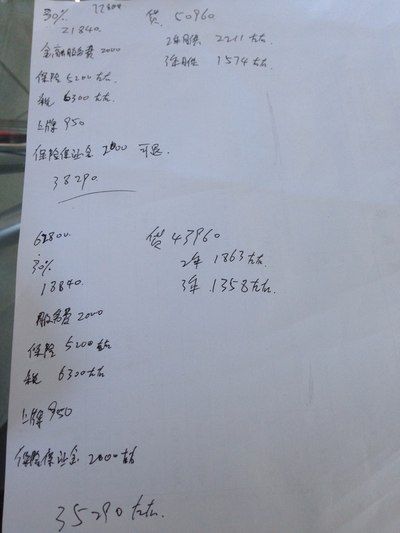 30% 72800
21840. 贷 50960
金融服务费 2000 2年月供 2211左右
保险 5200左右 3年月供 1574左右
税 6300左右.
上牌 950
保险保证金 2000 可退.
38290.
62800. 贷 43960
30% 2年 1863左右.
18840. 3年 1358左右.
服务费 2000
保险 5200左右
税 6300左右
上牌 950
保险保证金 2000左右
35290左右.